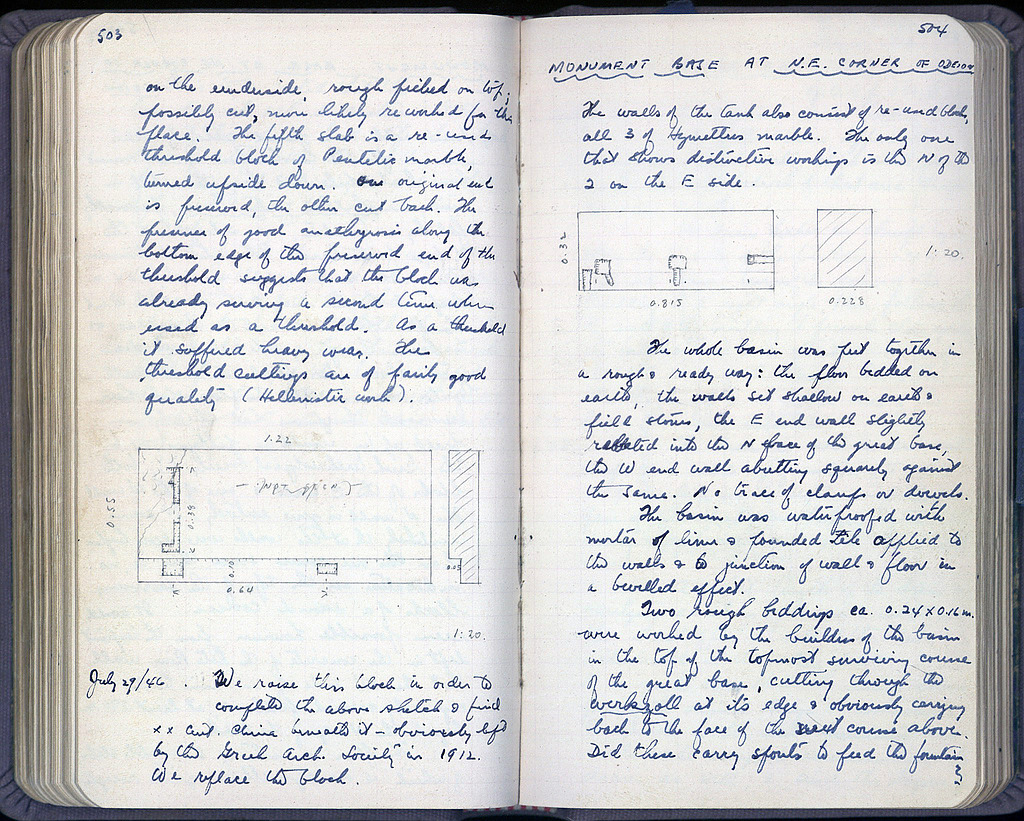 503
on the underside, rough picked on top;
possibly cut, more likely reworked for this
place. The fifth slab is a re-used
threshold block of Pentelic marble,
turned upside down. One original end
is preserved, the other cut back. The
presence of good anathyrosis along the
bottom edge of the preserved end of the
threshold suggests that the block was
already serving a second time when
used as a threshold. As a threshold
it suffered heavy wear. The
threshold cuttings are of fairly good
quality (Hellenistic work).
1.22
0.55
0.39
0.10
0.64
0.05
1:20.
July 29/46. We raise this block in order to
complete the above sketch & find
xx cent. china beneath it – obviously left
by the Greek Arch. Society in 1912.
We replace the block.
504
MONUMENT BASE AT N.E. CORNER OF ODEION
The walls of the tank also consist of re-used blocks,
all 3 of Hymettus marble. The only one
that shows distinctive workings is the N of the
2 on the E side.
0.32
0.815
0.228
1:20.
The whole basin was put together in
a rough & ready way: the floor bedded on
earth, the walls set shallow on earth &
field stones, the E end wall slightly
rabbeted into the N face of the great base,
the W end wall abutting squarely against
the same. No trace of clamps or dowels.
The basin was waterproofed with
mortar of lime & pounded tile applied to
the walls & to junction of wall & floor in
a bevelled effect.
Two rough beddings ca. 0.24 x 0.16 m.
were worked by the builders of the basin
in the top of the topmost surviving course
of the great base, cutting through the
werkzoll at its edge & obviously carrying
back to the face of the next course above.
Did these carry spouts to feed the fountain
?